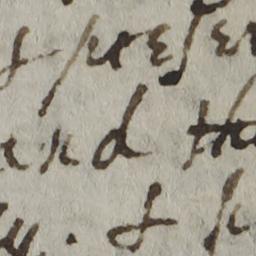 & preser
and the
y. &